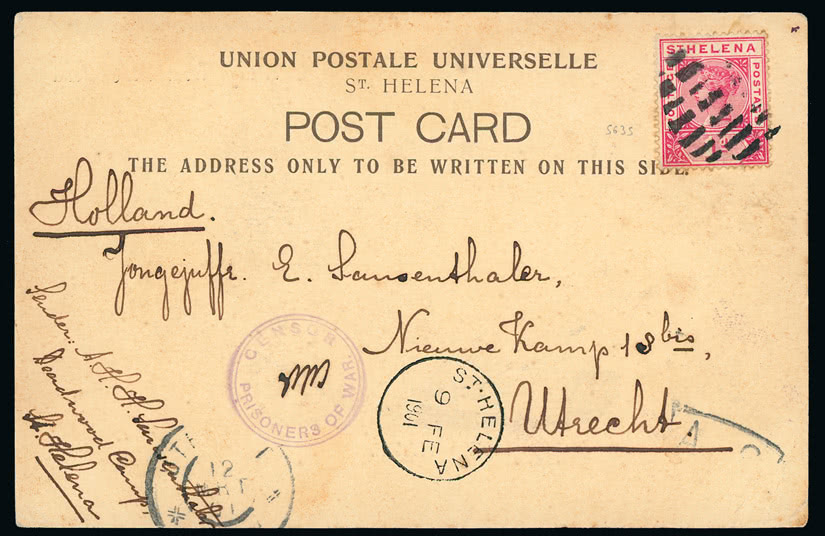 UNION POSTALE UNIVERSELLE
ST. HELENA
POST CARD
THE ADDRESS ONLY TO BE WRITTEN ON THIS SIDE.
ST HELENA
POSTAGE
5635
Holland.
Jongejuffr. E. Sansenthaler,
Nieuwe Kamp 18 bis,
Utrecht.
CENSOR
PRISONERS OF WAR.
ST. HELENA
9
FE
1901
Sender: A. H. H. Sansenthaler
Deadwood Camp,
St. Helena
12